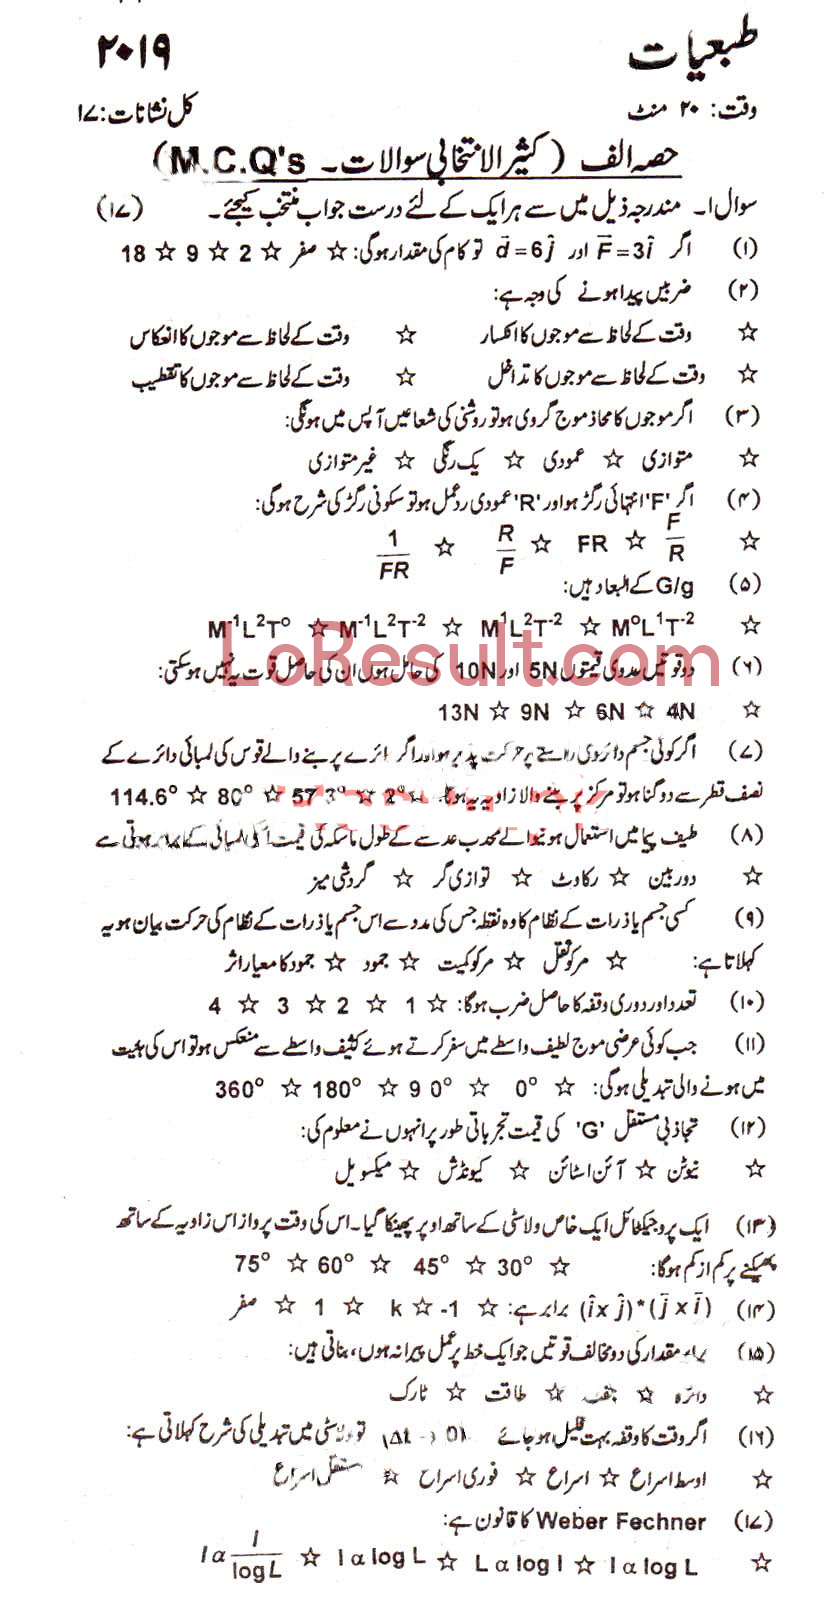 طبعیات
۲۰۱۹
وقت: ۲۰ منٹ
کل نشانات: ۱۷
حصہ الف (کثیر الانتخابی سوالات۔ M.C.Q's)
سوال ۱۔ مندرجہ ذیل میں سے ہر ایک کے لئے درست جواب منتخب کیجئے۔ (۱۷)
(۱) اگر F⃗=3î اور d⃗=6ĵ تو کام کی مقدار ہوگی: ☆ صفر ☆ 2 ☆ 9 ☆ 18
(۲) ضربیں پیدا ہونے کی وجہ ہے:
☆ وقت کے لحاظ سے موجوں کا انکسار ☆ وقت کے لحاظ سے موجوں کا انعکاس
☆ وقت کے لحاظ سے موجوں کا تداخل ☆ وقت کے لحاظ سے موجوں کا تقطیب
(۳) اگر موجوں کا محاذ موج کروی ہو تو روشنی کی شعاعیں آپس میں ہونگی:
☆ متوازی ☆ عمودی ☆ یک رنگی ☆ غیر متوازی
(۴) اگر 'F' انتہائی رگڑ ہو اور 'R' عمودی ردعمل ہو تو سکونی رگڑ کی شرح ہوگی:
☆ F/R ☆ FR ☆ R/F ☆ 1/FR
(۵) G/g کے ابعاد ہیں:
☆ M⁰L¹T⁻² ☆ M¹L²T⁻² ☆ M⁻¹L²T⁻² ☆ M⁻¹L²T⁰
LoResult.com
(۶) دو قوتیں عددی قیمتوں 5N اور 10N کی حامل ہوں ان کی حاصل قوت یہ نہیں ہو سکتی:
☆ 4N ☆ 6N ☆ 9N ☆ 13N
(۷) اگر کوئی جسم دائروی راستے پر حرکت پذیر ہو اور اگر دائرے پر بننے والے قوس کی لمبائی دائرے کے
نصف قطر سے دو گنا ہو تو مرکز پر بننے والا زاویہ یہ ہوگا۔ ☆ 2° ☆ 57.3° ☆ 80° ☆ 114.6°
(۸) طیف پیما میں استعمال ہونیوالے محدب عدسے کے طول ماسکہ کی قیمت اسکی لمبائی کے برابر ہوتی ہے
☆ دوربین ☆ رکاوٹ ☆ توازی گر ☆ گردشی میز
(۹) کسی جسم یا ذرات کے نظام کا وہ نقطہ جس کی مدد سے اس جسم یا ذرات کے نظام کی حرکت بیان ہو یہ
کہلاتا ہے: ☆ مرکز ثقل ☆ مرکز کمیت ☆ جمود ☆ جمود کا معیار اثر
(۱۰) تعدد اور دوری وقفہ کا حاصل ضرب ہوگا: ☆ 1 ☆ 2 ☆ 3 ☆ 4
(۱۱) جب کوئی عرضی موج لطیف واسطے میں سفر کرتے ہوئے کثیف واسطے سے منعکس ہو تو اس کی ہیئت
میں ہونے والی تبدیلی ہوگی: ☆ 0° ☆ 90° ☆ 180° ☆ 360°
(۱۲) تجاذبی مستقل 'G' کی قیمت تجرباتی طور پر انہوں نے معلوم کی:
☆ نیوٹن ☆ آئن اسٹائن ☆ کیونڈش ☆ میکسویل
(۱۳) ایک پروجیکٹائل ایک خاص ولاسٹی کے ساتھ اوپر پھینکا گیا۔ اس کی وقت پرواز اس زاویہ کے ساتھ
پھینکنے پر کم از کم ہوگا: ☆ 30° ☆ 45° ☆ 60° ☆ 75°
(۱۴) (î x ĵ)*(j̄ x ī) برابر ہے: ☆ -1 ☆ k ☆ 1 ☆ صفر
(۱۵) برابر مقدار کی دو مخالف قوتیں جو ایک خط پر عمل پیرا نہ ہوں، بناتی ہیں:
☆ دائرہ ☆ جفت ☆ طاقت ☆ ٹارک
(۱۶) اگر وقت کا وقفہ بہت قلیل ہو جائے (Δt → 0) تو ولاسٹی میں تبدیلی کی شرح کہلاتی ہے:
☆ اوسط اسراع ☆ اسراع ☆ فوری اسراع ☆ مستقل اسراع
(۱۷) Weber Fechner کا قانون ہے:
☆ I α log L ☆ L α log I ☆ I α log L ☆ I α I/log L